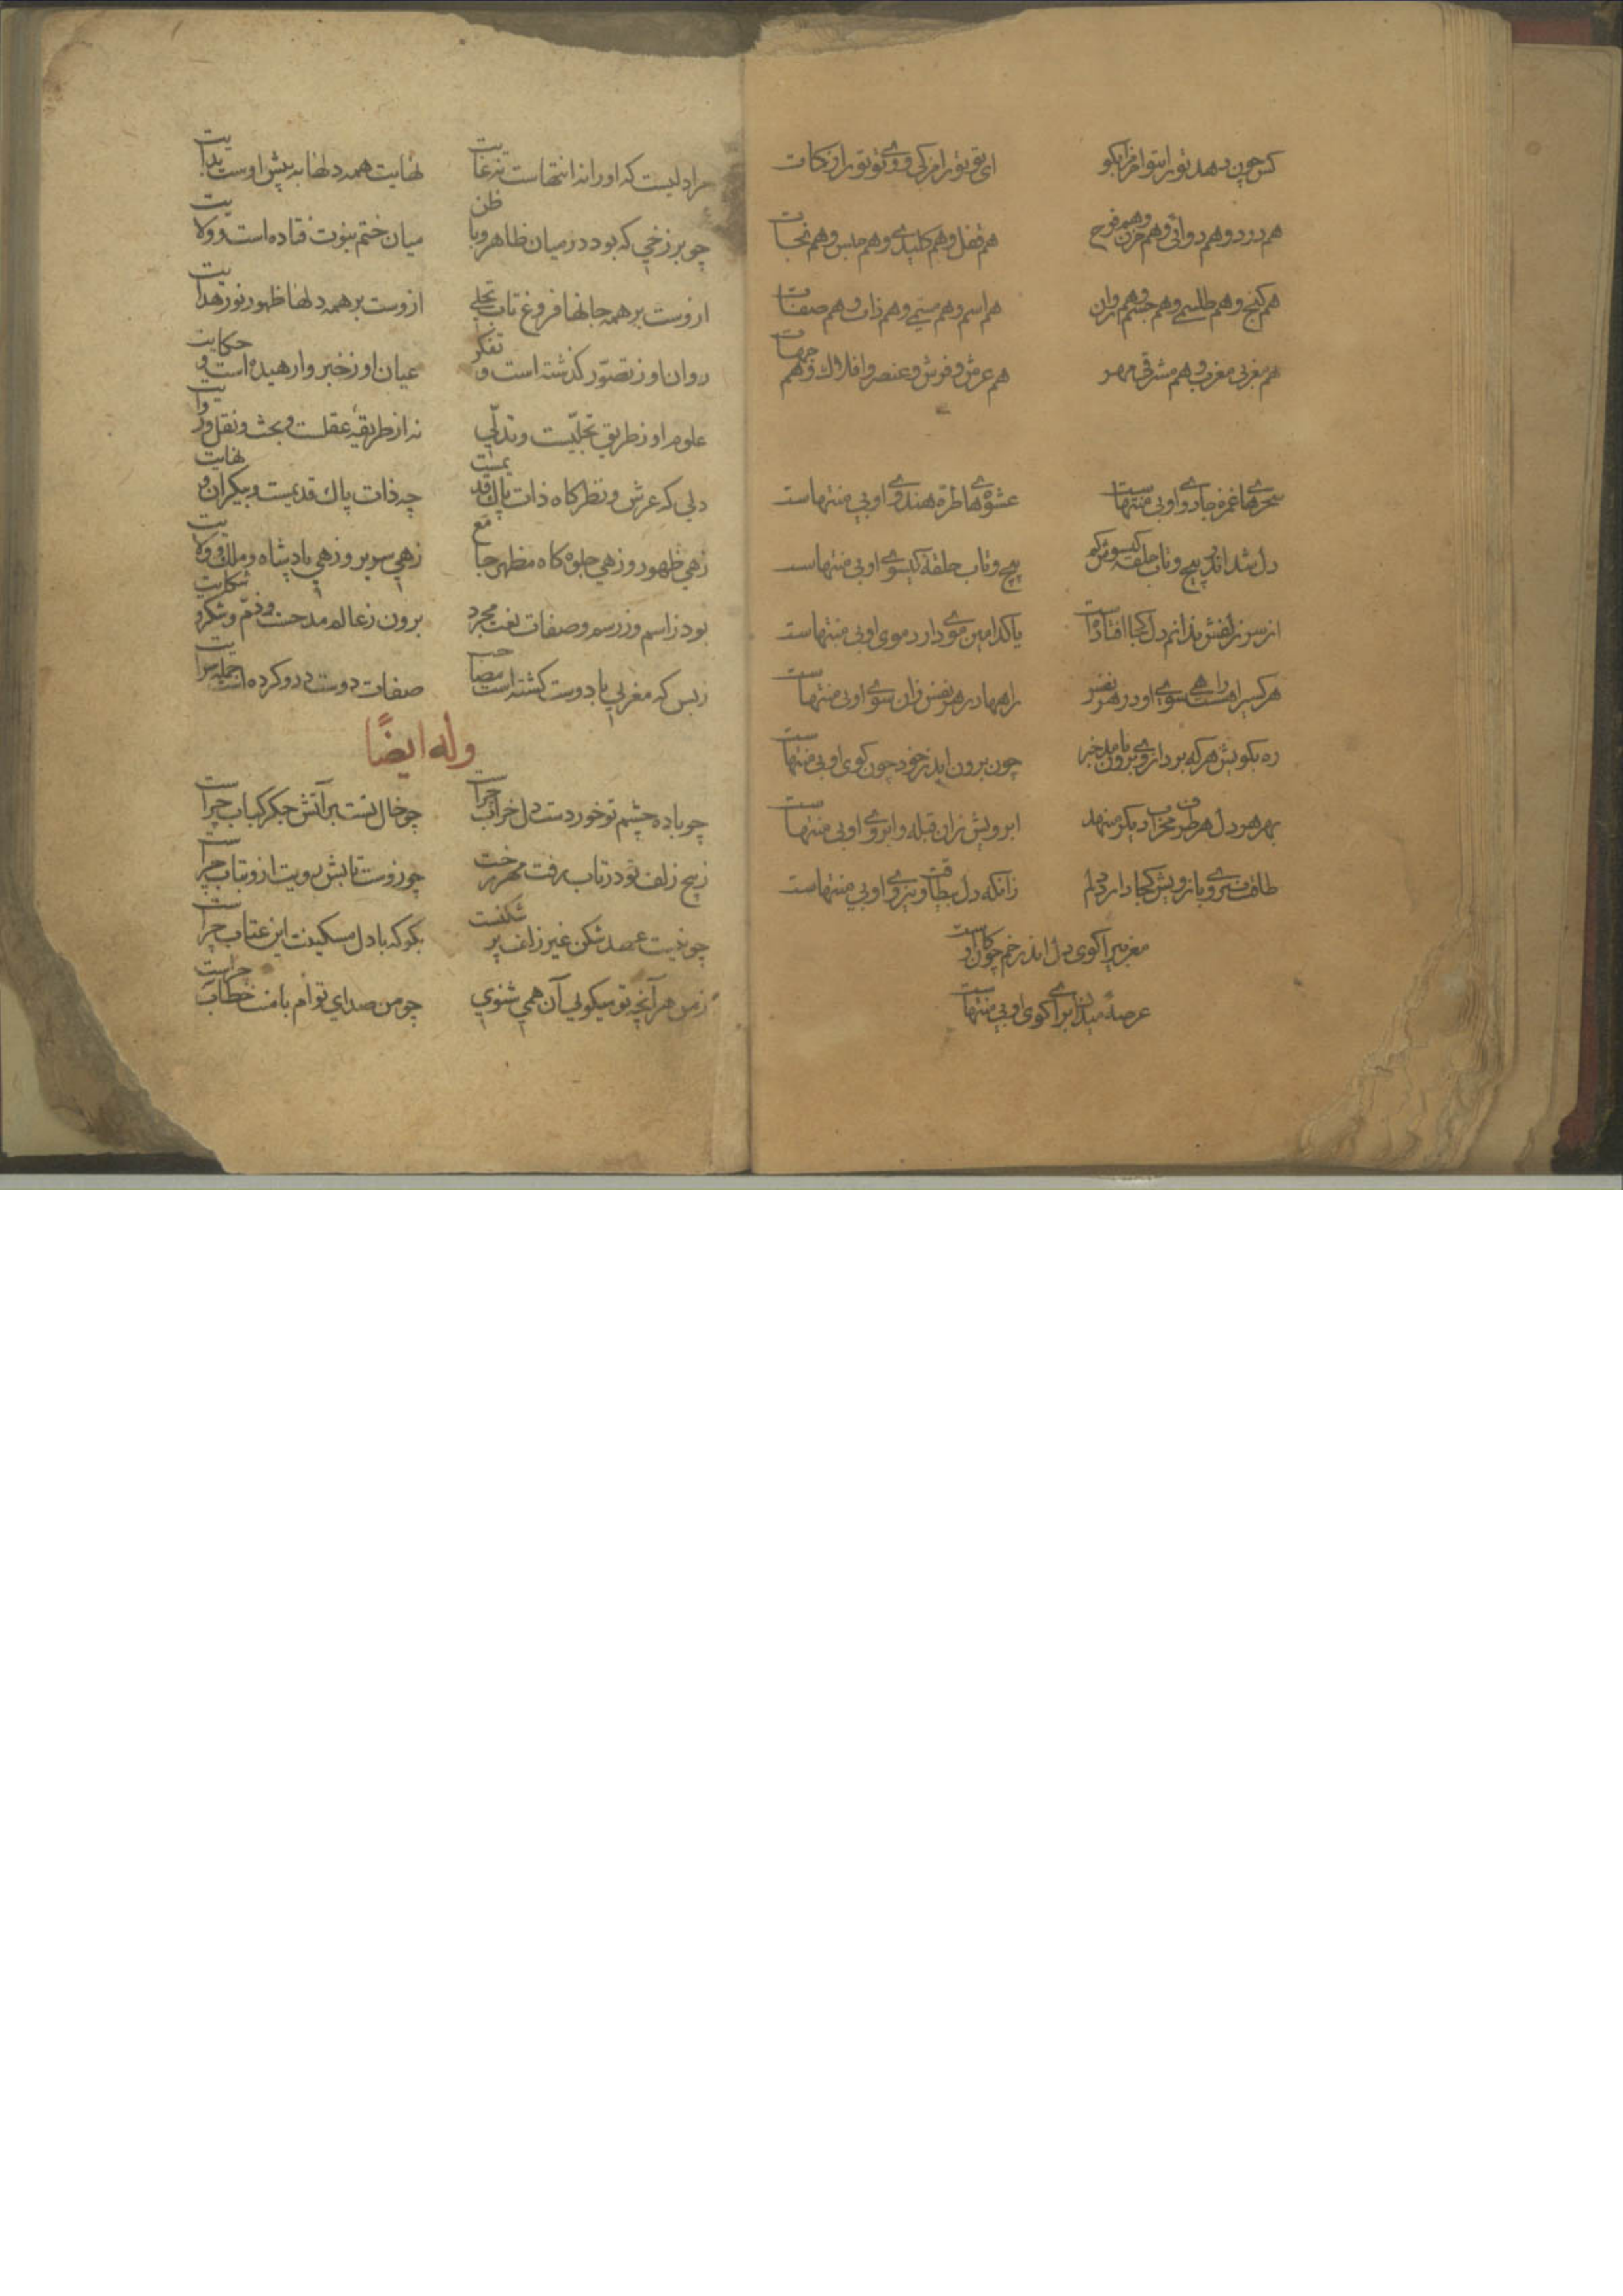 کس چون دهد تورا بتو امرا بکو ای تو تورا مزکی و وی تو تورا زکات
هم درد و هم دوائی و هم حزن و هم فرح هم قفل و هم کلیدی و هم حبس و هم نجات
هم کنج و هم طلسمی و هم جسم و هم روان هم اسم و هم مسمی و هم ذات و هم صفات
هم مغربی مغرب و هم مشرقی مهر هم عرش و فرش و عنصر و افلاک و هم جهات
سحرهای غمزه جادوی او بی منتهاست عشوهای طره هندوی او بی منتهاست
دل شد اندر پیچ و تاب حلقه کیسوش کم پیچ و تاب حلقه کیسوی او بی منتهاست
از سر زلفش ندانم دل کجا افتاده است یا کدامین موی دارد موی او بی منتهاست
هر کسیرا هست راهی سوی او در هر نفس راهها در هر نفس زان سوی او بی منتهاست
ره بکویش هر که برد از وی برون نامد خبر چون برون اید ز خود چون کوی او بی منتهاست
بهر هر دل هر طرف محراب دیکر مینهد ابرویش زان قبله و ابروی او بی منتهاست
طاقت نیروی بازویش کجا دارد دلم زانکه دل بیطاقت و نیروی او بی منتهاست
مغربیرا کوی دل اندر خم چوکان اوست
عرصه میدان برای کوی او بی منتهاست
مرا دلیست که اورا نه انتهاست نه غایت نهایت همه دلها به پیش اوست بدایت
چو برزخی که بود در میان ظاهر و باطن میان ختم نبوت فتاده است و ولایت
ازوست بر همه جانها فروغ تاب تجلی ازوست بر همه دلها ظهور نور هدایت
روان او ز تصوّر کذشته است و تفکّر عیان او ز خبر وارهیده است و حکایت
علوم او ز طریق تجلّیست و تدلّی نه از طریقهٔ عقلست و بحث و نقل و روایت
دلی که عرش و نظرکاه ذات پاک قدیمست چه ذات پاک قدیمست و بیکران و نهایت
زهی ظهور و زهی جلوه کاه مظهر جامع زهی سریر و زهی پادشاه و ملک و ولایت
بود ز اسم و ز رسم و صفات نعت مجرد برون ز عالم مدحت و ذمّ و شکر و شکایت
ز بس که مغربی با دوست کشته است مصاحب صفات دوست درو کرده است جمله سرایت
وله ایضًا
چو باده چشم تو خوردست دل خراب چراست چو خال تست بر آتش جکر کباب چراست
ز پیچ زلف تو در تاب رفت مهر رخت چو زوست تابش رویت ازو بتاب چراست
چو نیست عهد شکن غیر زلف پر شکنت بکو که با دل مسکینت این عتاب چراست
ز من هر آنچه تو میکوئی آن همی شنوی چو من صدای توام با منت خطاب چراست